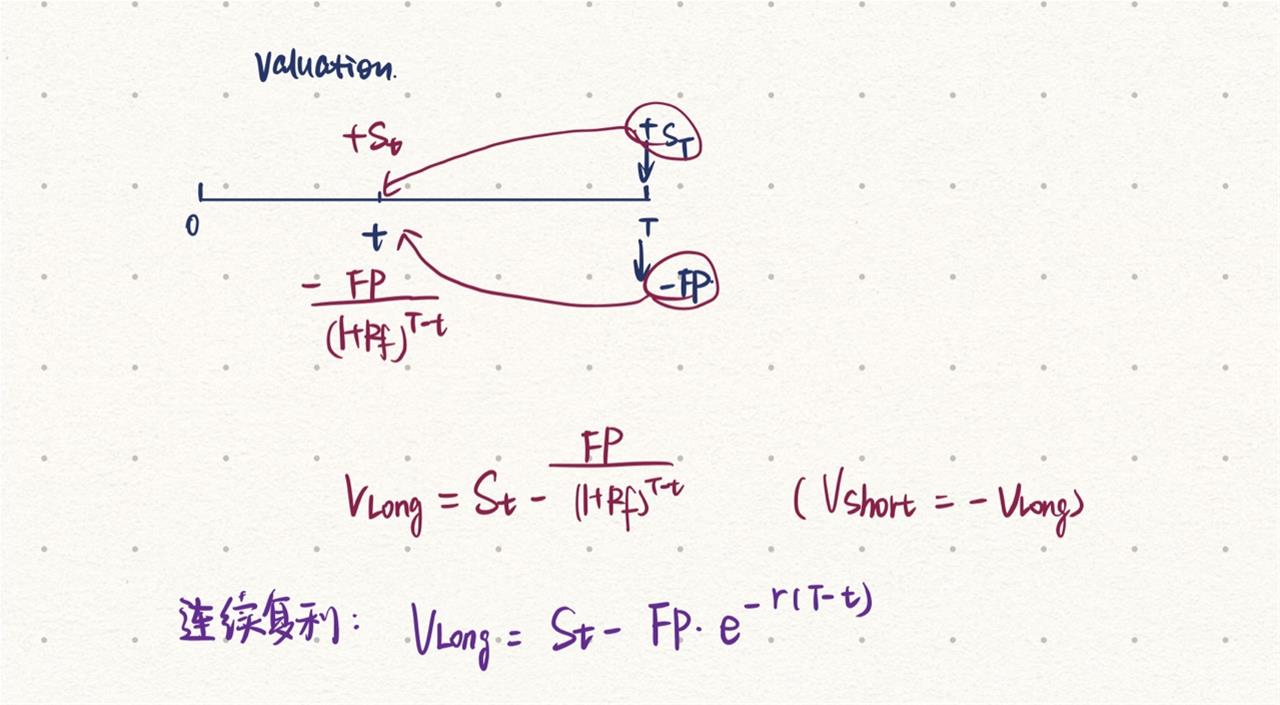 Valuation.
+St
+S_T
0
t
T
- FP/(1+Rf)^{T-t}
-FP.
V_Long = St - FP/(1+Rf)^{T-t} (V_Short = - V_Long)
连续复利: V_Long = St - FP· e^{-r(T-t)}